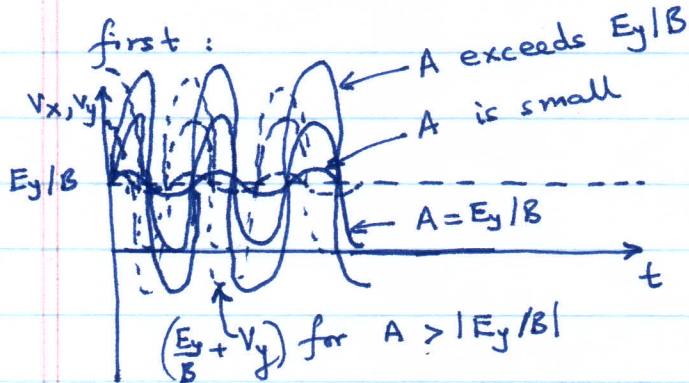 first :
A exceeds Ey/B
Vx, Vy
A is small
Ey/B
A = Ey/B
t
(Ey/B + Vy) for A > |Ey/B|